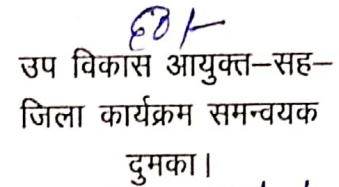 उप विकास आयुक्त–सह–
जिला कार्यक्रम समन्वयक
दुमका।